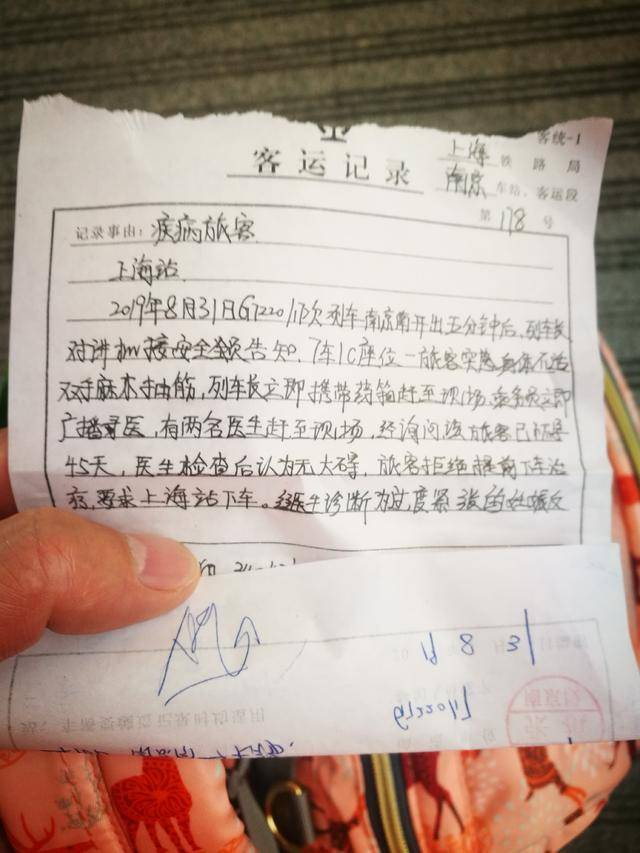 客统-1
上海 铁路局
客运记录
南京 车站、客运段
第 178 号
记录事由：疾病旅客
上海站
2019年8月31日G7220/17次列车南京南开出五分钟后，列车长
对讲机接安全员告知，7车1C座位一旅客突感身体不适
双手麻木抽筋，列车长立即携带药箱赶至现场，立即
广播寻医，有两名医生赶至现场，经询问该旅客已怀孕
45天，医生检查后认为无大碍，旅客拒绝提前下车治
疗，要求上海站下车。经医生诊断为过度紧张的
19 8 31